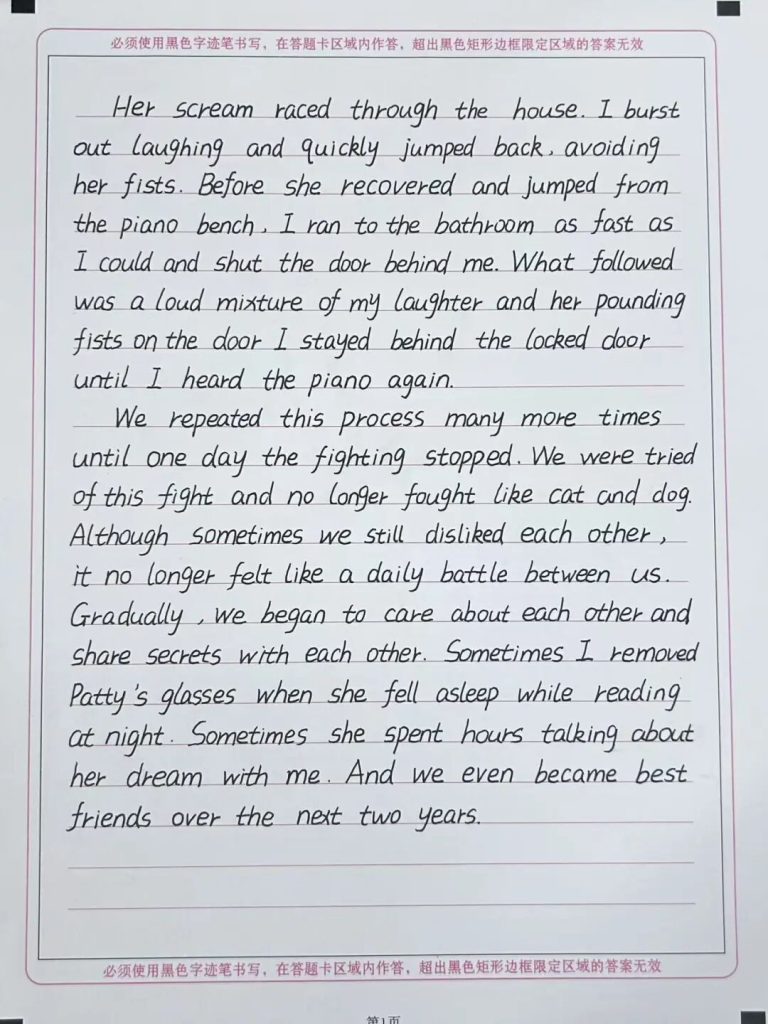 必须使用黑色字迹笔书写，在答题卡区域内作答，超出黑色矩形边框限定区域的答案无效
Her scream raced through the house. I burst
out laughing and quickly jumped back, avoiding
her fists. Before she recovered and jumped from
the piano bench, I ran to the bathroom as fast as
I could and shut the door behind me. What followed
was a loud mixture of my laughter and her pounding
fists on the door I stayed behind the locked door
until I heard the piano again.
We repeated this process many more times
until one day the fighting stopped. We were tried
of this fight and no longer fought like cat and dog.
Although sometimes we still disliked each other,
it no longer felt like a daily battle between us.
Gradually, we began to care about each other and
share secrets with each other. Sometimes I removed
Patty's glasses when she fell asleep while reading
at night. Sometimes she spent hours talking about
her dream with me. And we even became best
friends over the next two years.
必须使用黑色字迹笔书写，在答题卡区域内作答，超出黑色矩形边框限定区域的答案无效
第1页